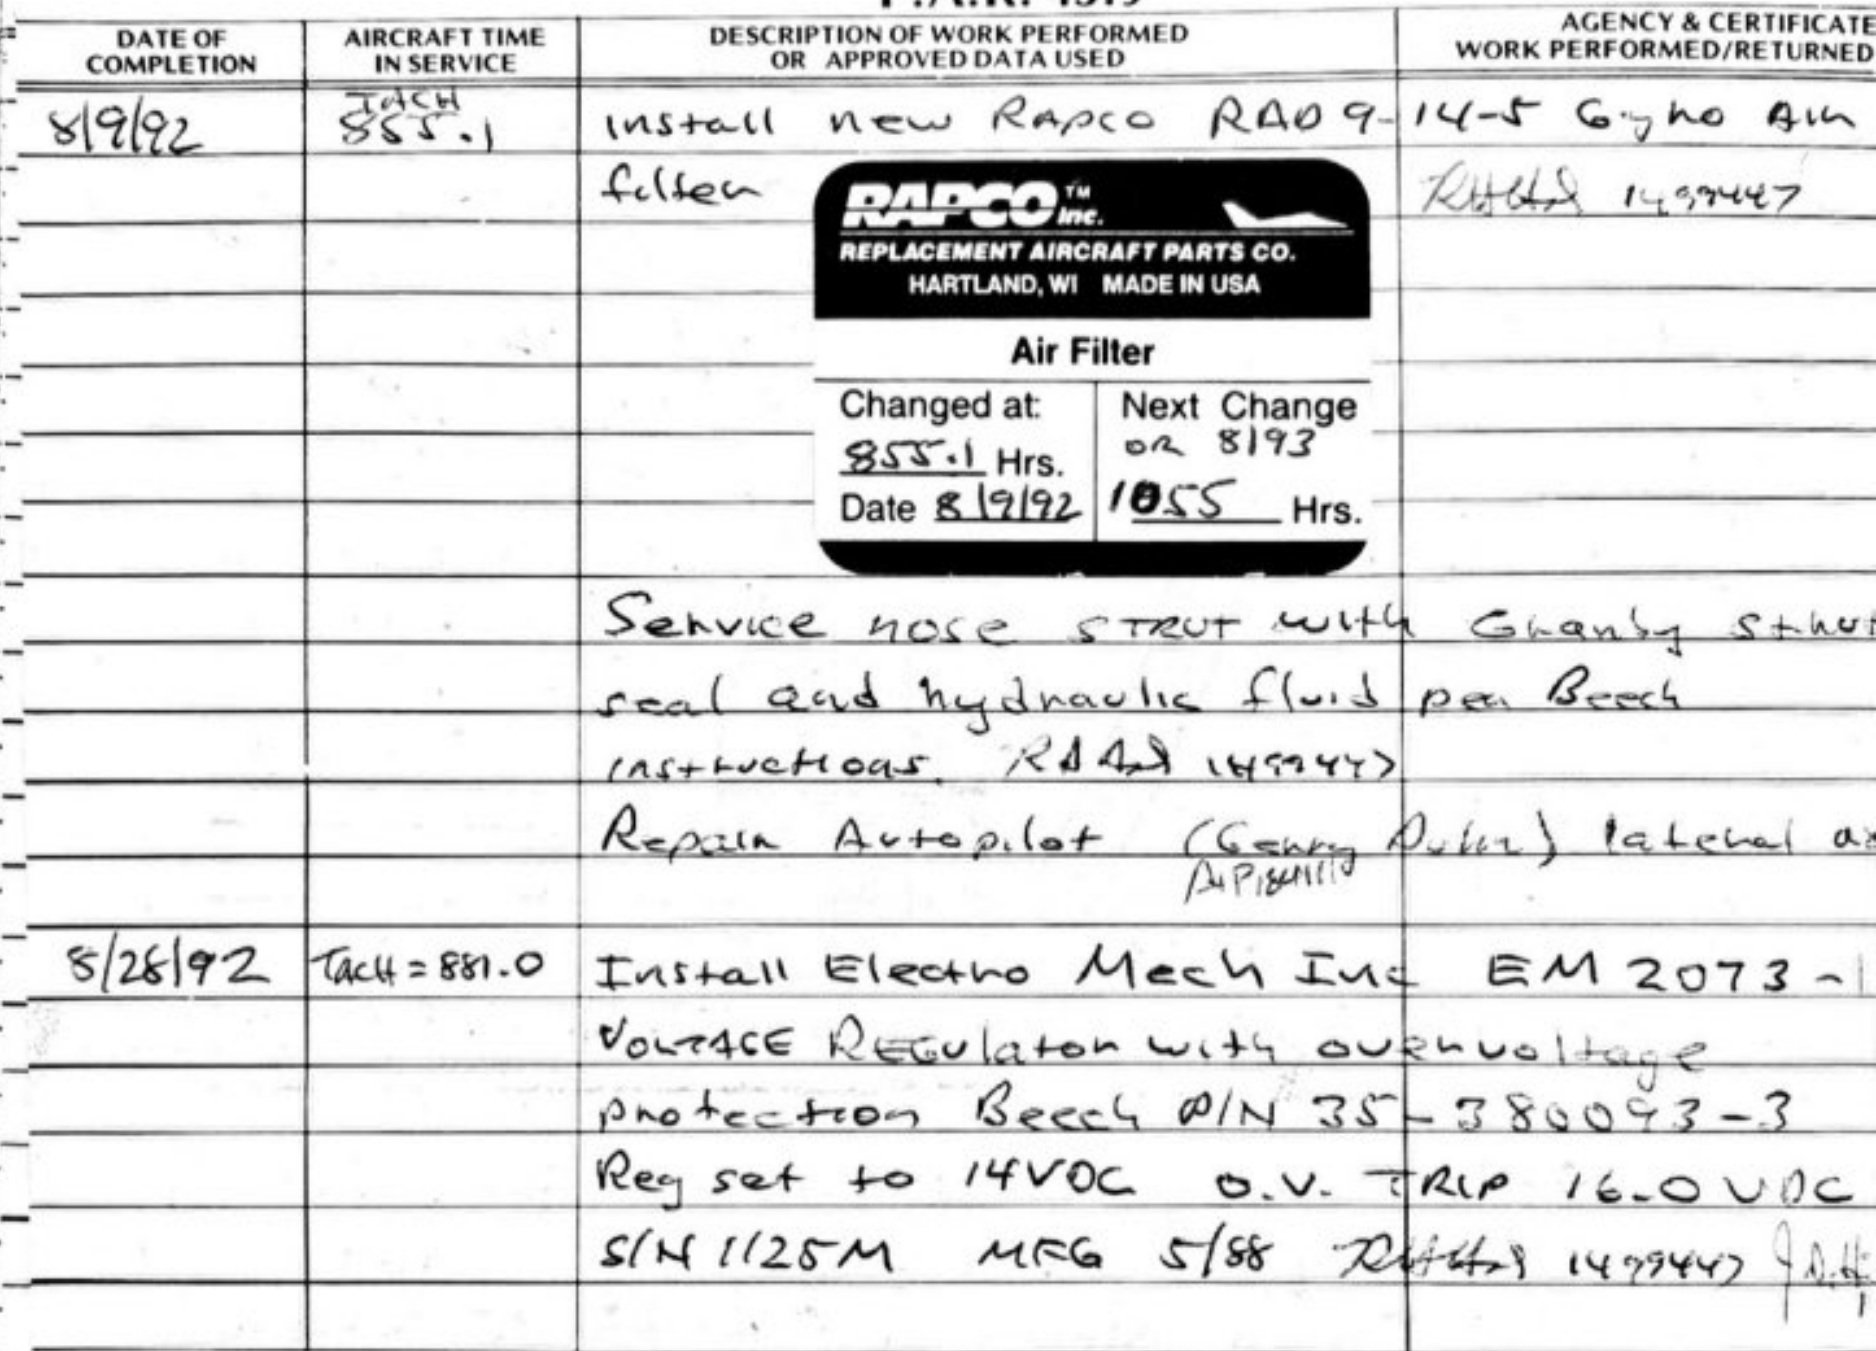 DATE OF COMPLETION
AIRCRAFT TIME IN SERVICE
DESCRIPTION OF WORK PERFORMED OR APPROVED DATA USED
AGENCY & CERTIFICATE
WORK PERFORMED/RETURNED
8/9/92 TACH 855.1 install new RAPCO RAD 9-14-5 Gyro Air
filter 1499447
RAPCO™ Inc.
REPLACEMENT AIRCRAFT PARTS CO.
HARTLAND, WI MADE IN USA
Air Filter
Changed at: 855.1 Hrs.
Date 8/9/92
Next Change
OR 8/93
1055 Hrs.
Service nose STRUT with Granby strut
seal and hydraulic fluid per Beech
instructions. 1499447
Repair Autopilot lateral
8/28/92 TACH = 881.0 Install Electro Mech Inc EM 2073-1
VOLTAGE REGulator with overvoltage
protection Beech P/N 35-380093-3
Reg set to 14VDC O.V. TRIP 16.0 VDC
S/N 1125M MFG 5/88 1499447